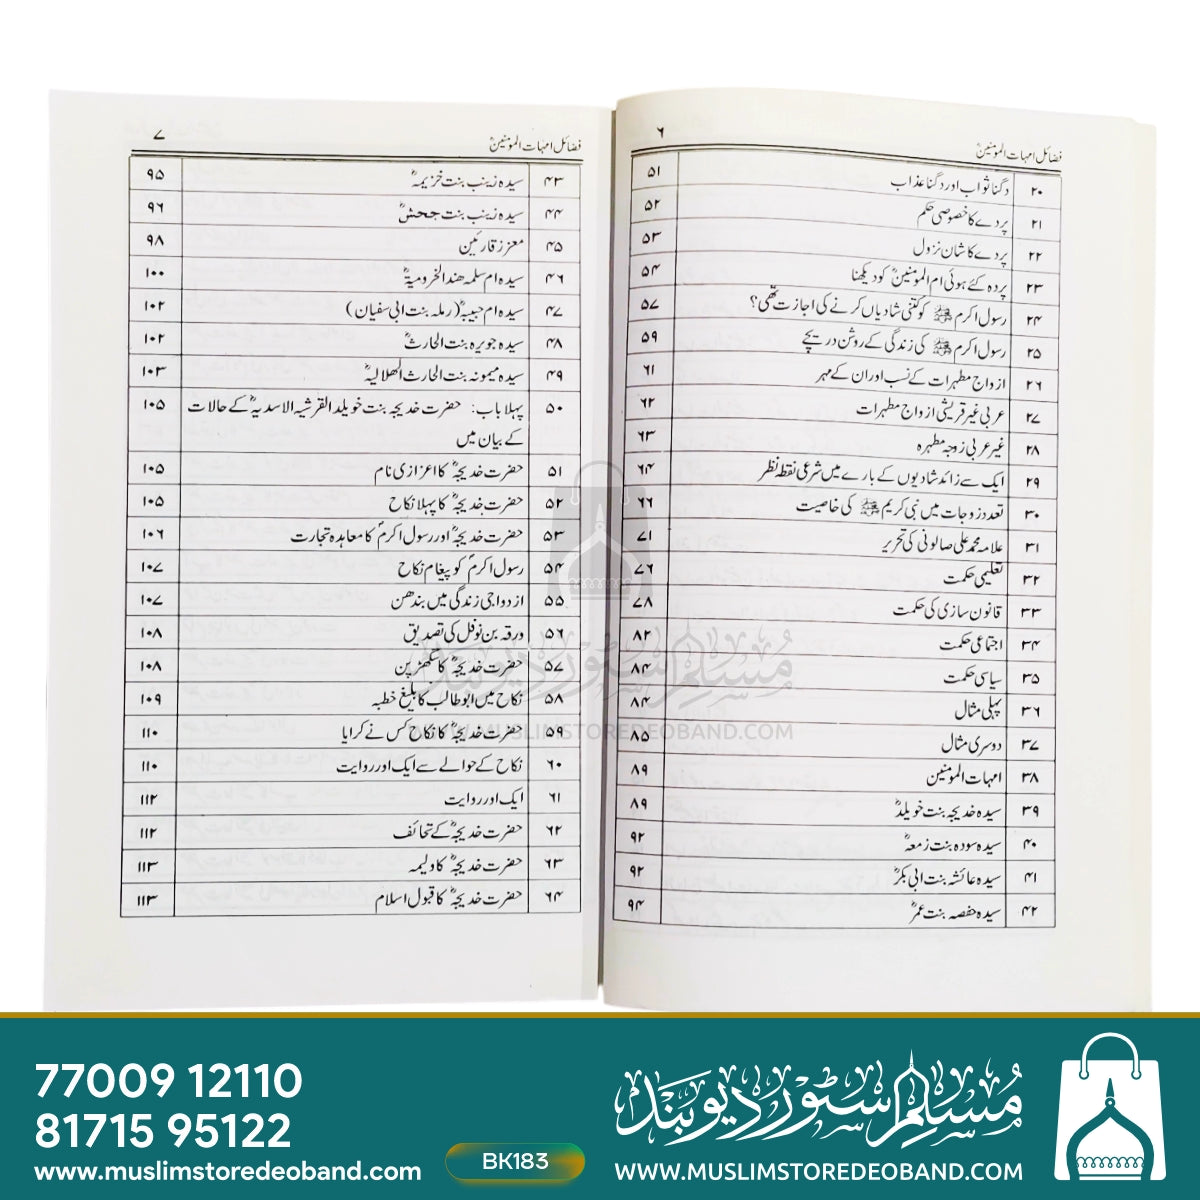 فضائل امہات المومنینؓ ۶
۲۰ دگنا ثواب اور دگنا عذاب ۵۱
۲۱ پردے کا خصوصی حکم ۵۲
۲۲ پردے کا شان نزول ۵۳
۲۳ پردہ کئے ہوئی ام المومنینؓ کو دیکھنا ۵۴
۲۴ رسول اکرم ﷺ کو کتنی شادیاں کرنے کی اجازت تھی؟ ۵۷
۲۵ رسول اکرم ﷺ کی زندگی کے روشن دریچے ۵۹
۲۶ ازواج مطہرات کے نسب اور ان کے مہر ۶۱
۲۷ عربی غیر قریشی ازواج مطہرات ۶۲
۲۸ غیر عربی زوجہ مطہرہ ۶۳
۲۹ ایک سے زائد شادیوں کے بارے میں شرعی نقطہ نظر ۶۴
۳۰ تعدد زوجات میں نبی کریم ﷺ کی خاصیت ۶۶
۳۱ علامہ محمد علی صالونی کی تحریر ۷۱
۳۲ تعلیمی حکمت ۷۶
۳۳ قانون سازی کی حکمت ۷۸
۳۴ اجتماعی حکمت ۸۲
۳۵ سیاسی حکمت ۸۴
۳۶ پہلی مثال ۸۴
۳۷ دوسری مثال ۸۵
۳۸ امہات المومنین ۸۹
۳۹ سیدہ خدیجہ بنت خویلدؓ ۸۹
۴۰ سیدہ سودہ بنت زمعہؓ ۹۲
۴۱ سیدہ عائشہ بنت ابی بکرؓ ۹۲
۴۲ سیدہ حفصہ بنت عمرؓ ۹۴
فضائل امہات المومنینؓ ۷
۴۳ سیدہ زینب بنت خزیمہؓ ۹۵
۴۴ سیدہ زینب بنت جحشؓ ۹۶
۴۵ معزز قارئین ۹۸
۴۶ سیدہ ام سلمہ ھند الخرومیۃؓ ۱۰۰
۴۷ سیدہ ام حبیبہؓ (رملہ بنت ابی سفیان) ۱۰۲
۴۸ سیدہ جویرہ بنت الحارثؓ ۱۰۲
۴۹ سیدہ میمونہ بنت الحارث الھلالیہؓ ۱۰۳
۵۰ پہلا باب: حضرت خدیجہ بنت خویلد القرشیہ الاسدیہؓ کے حالات ۱۰۵
کے بیان میں
۵۱ حضرت خدیجہؓ کا اعزازی نام ۱۰۵
۵۲ حضرت خدیجہؓ کا پہلا نکاح ۱۰۵
۵۳ حضرت خدیجہؓ اور رسول اکرمؐ کا معاہدہ تجارت ۱۰۶
۵۴ رسول اکرمؐ کو پیغام نکاح ۱۰۷
۵۵ ازدواجی زندگی میں بندھن ۱۰۷
۵۶ ورقہ بن نوفل کی تصدیق ۱۰۸
۵۷ حضرت خدیجہؓ کا گھڑپن ۱۰۸
۵۸ نکاح میں ابوطالب کا بلیغ خطبہ ۱۰۹
۵۹ حضرت خدیجہؓ کا نکاح کس نے کرایا ۱۱۰
۶۰ نکاح کے حوالے سے ایک اور روایت ۱۱۰
۶۱ ایک اور روایت ۱۱۲
۶۲ حضرت خدیجہؓ کے تحائف ۱۱۲
۶۳ حضرت خدیجہؓ کا ولیمہ ۱۱۳
۶۴ حضرت خدیجہؓ کا قبول اسلام ۱۱۳
مسلم سٹور دیوبند
WWW.MUSLIMSTOREDEOBAND.COM
77009 12110
81715 95122
www.muslimstoredeoband.com
BK183
مسلم سٹور دیوبند
WWW.MUSLIMSTOREDEOBAND.COM